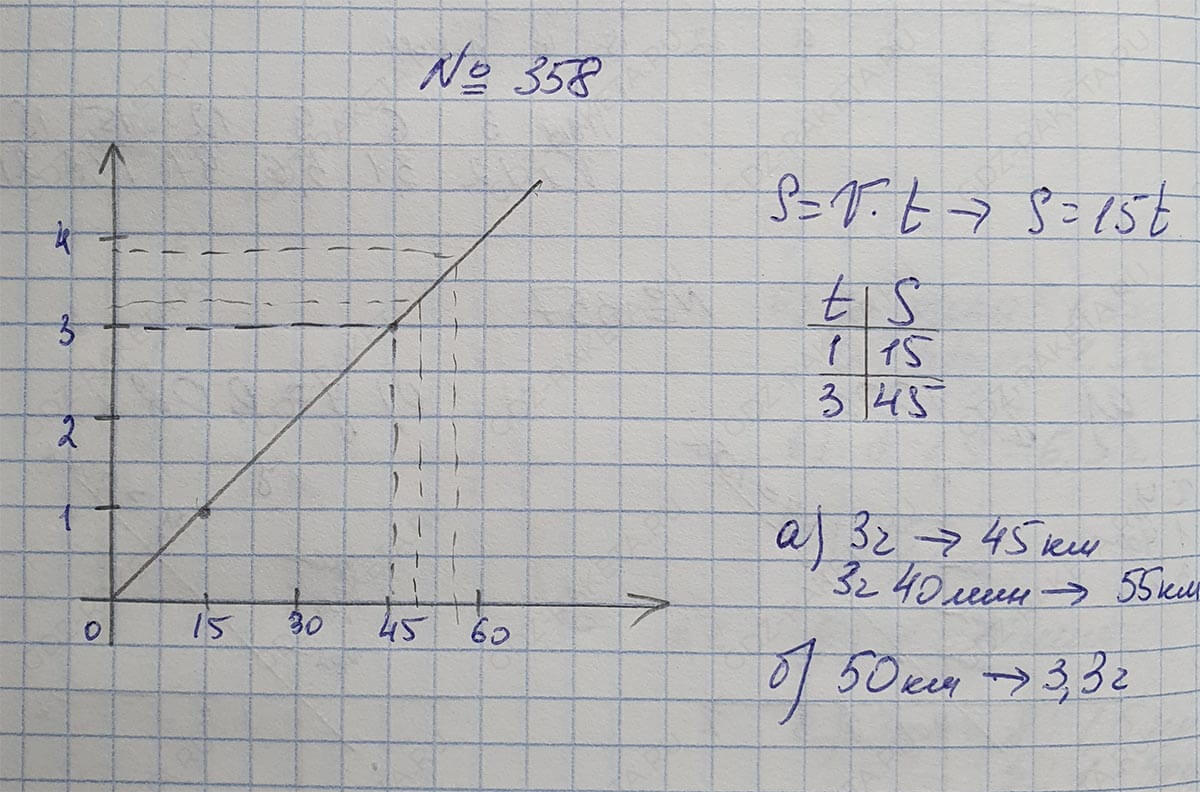 № 358
4
3
2
1
0 15 30 45 60
S = V · t → S = 15t
t S
1 15
3 45
а) 3ч → 45 км
3ч 40 мин → 55 км
б) 50 км → 3,3ч